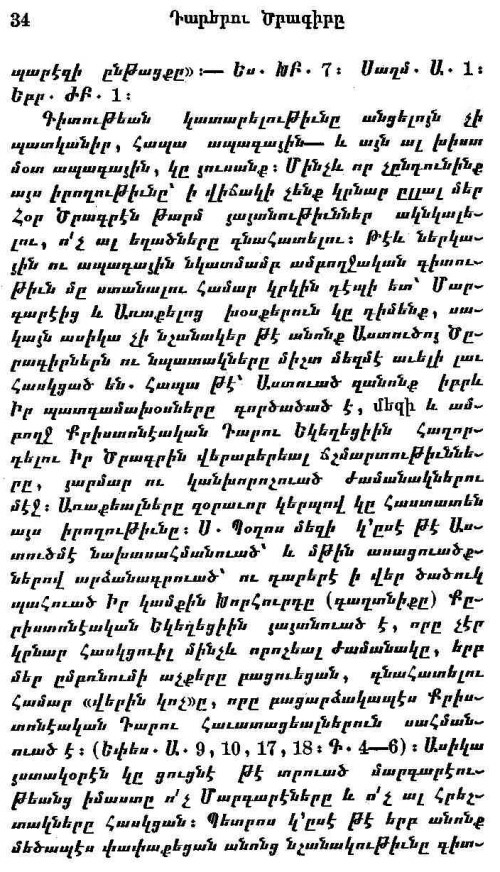 34 Դարերու Ծրագիրը
պարէզի ընթացքը»։— Ես. ԽԲ. 7։ Սաղմ. Ա. 1։
Եբր. ԺԲ. 1։
Գիտութեան կատարելութիւնը անցելոյն չի
պատկանիր, հապա ապագային— և այն ալ խիստ
մօտ ապագային, կը յուսանք։ Մինչև որ չընդունինք
այս իրողութիւնը՝ ի վիճակի չենք կրնար ըլլալ մեր
Հօր Ծրագրէն թարմ յայտնութիւններ ակնկալե-
լու, ո՛չ ալ եղածները գնահատելու։ Թէև ներկա-
յին ու ապագային նկատմամբ ամբողջական գիտու-
թիւն մը ստանալու համար կրկին դէպի ետ՝ Մար-
գարէից և Առաքելոց խօսքերուն կը դիմենք, սա-
կայն ասիկա չի նշանակեր թէ անոնք Աստուծոյ Ծը-
րագիրներն ու նպատակները միշտ մեզմէ աւելի լաւ
հասկցած են. հապա թէ՝ Աստուած զանոնք իբրև
Իր պատգամախօսները գործածած է, մեզի և ամ-
բողջ Քրիստոնէական Դարու Եկեղեցիին հաղոր-
դելու Իր Ծրագրին վերաբերեալ ճշմարտութիւննե-
րը, յարմար ու կանխորոշուած ժամանակներու
մէջ։ Առաքեալները զօրաւոր կերպով կը հաստատեն
այս իրողութիւնը։ Ս. Պօղոս մեզի կ'ըսէ թէ Աս-
տուծմէ նախասահմանուած՝ և մթին ասացուածք-
ներով արձանագրուած՝ ու դարերէ ի վեր ծածուկ
պահուած Իր կամքին խորհուրդը (գաղտնիքը) Քը-
րիստոնէական Եկեղեցիին յայտնուած է, որը չէր
կրնար հասկցուիլ մինչև որոշեալ ժամանակը, երբ
մեր ըմբռնումի աչքերը բացուեցան, գնահատելու
համար «վերին կոչ»ը, որը բացարձակապէս Քրիս-
տոնէական Դարու Հաւատացեալներուն սահման-
ուած է։ (Եփես. Ա. 9, 10, 17, 18։ Գ. 4—6)։ Ասիկա
յստակօրէն կը ցուցնէ թէ տրուած մարգարէու-
թեանց իմաստը ո՛չ Մարգարէները և ո՛չ ալ Հրեշ-
տակները հասկցան։ Պետրոս կ'ըսէ թէ երբ անոնք
մեծապէս փափաքեցան անոնց նշանակութիւնը գիտ-